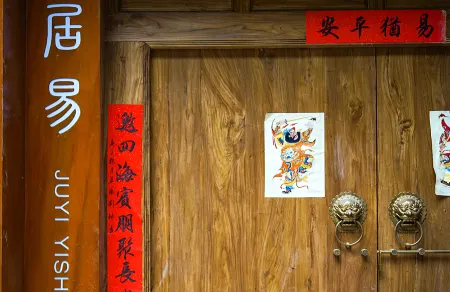 居易
JUYI YISH
易猶平安
邀四海賓朋聚長